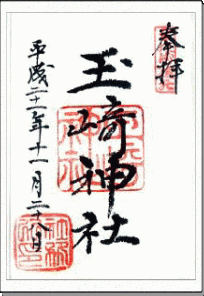 奉拝
玉崎神社
平成二十一年十一月二十八日